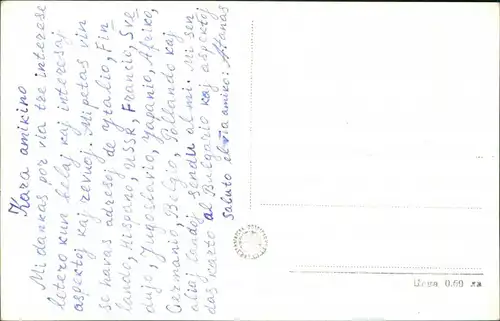 Kara amikino
Mi dankas por via tre interese
letero kun belaj kaj interesaj
aspektoj kaj revuoj. Mi petas vin
se havas adresoj de Ytalio, Fin
lando, Hispano, USSR, Francio, Sve
dujo, Jugoslavio, Yapanio, Afriko,
Germanio, Belgio, Pollando kaj
aliaj landoj sendu al mi. Mi sen
das karto al Bulgario kaj aspektoj
Saluto el via amiko: Atanas
Цена 0.60 лв